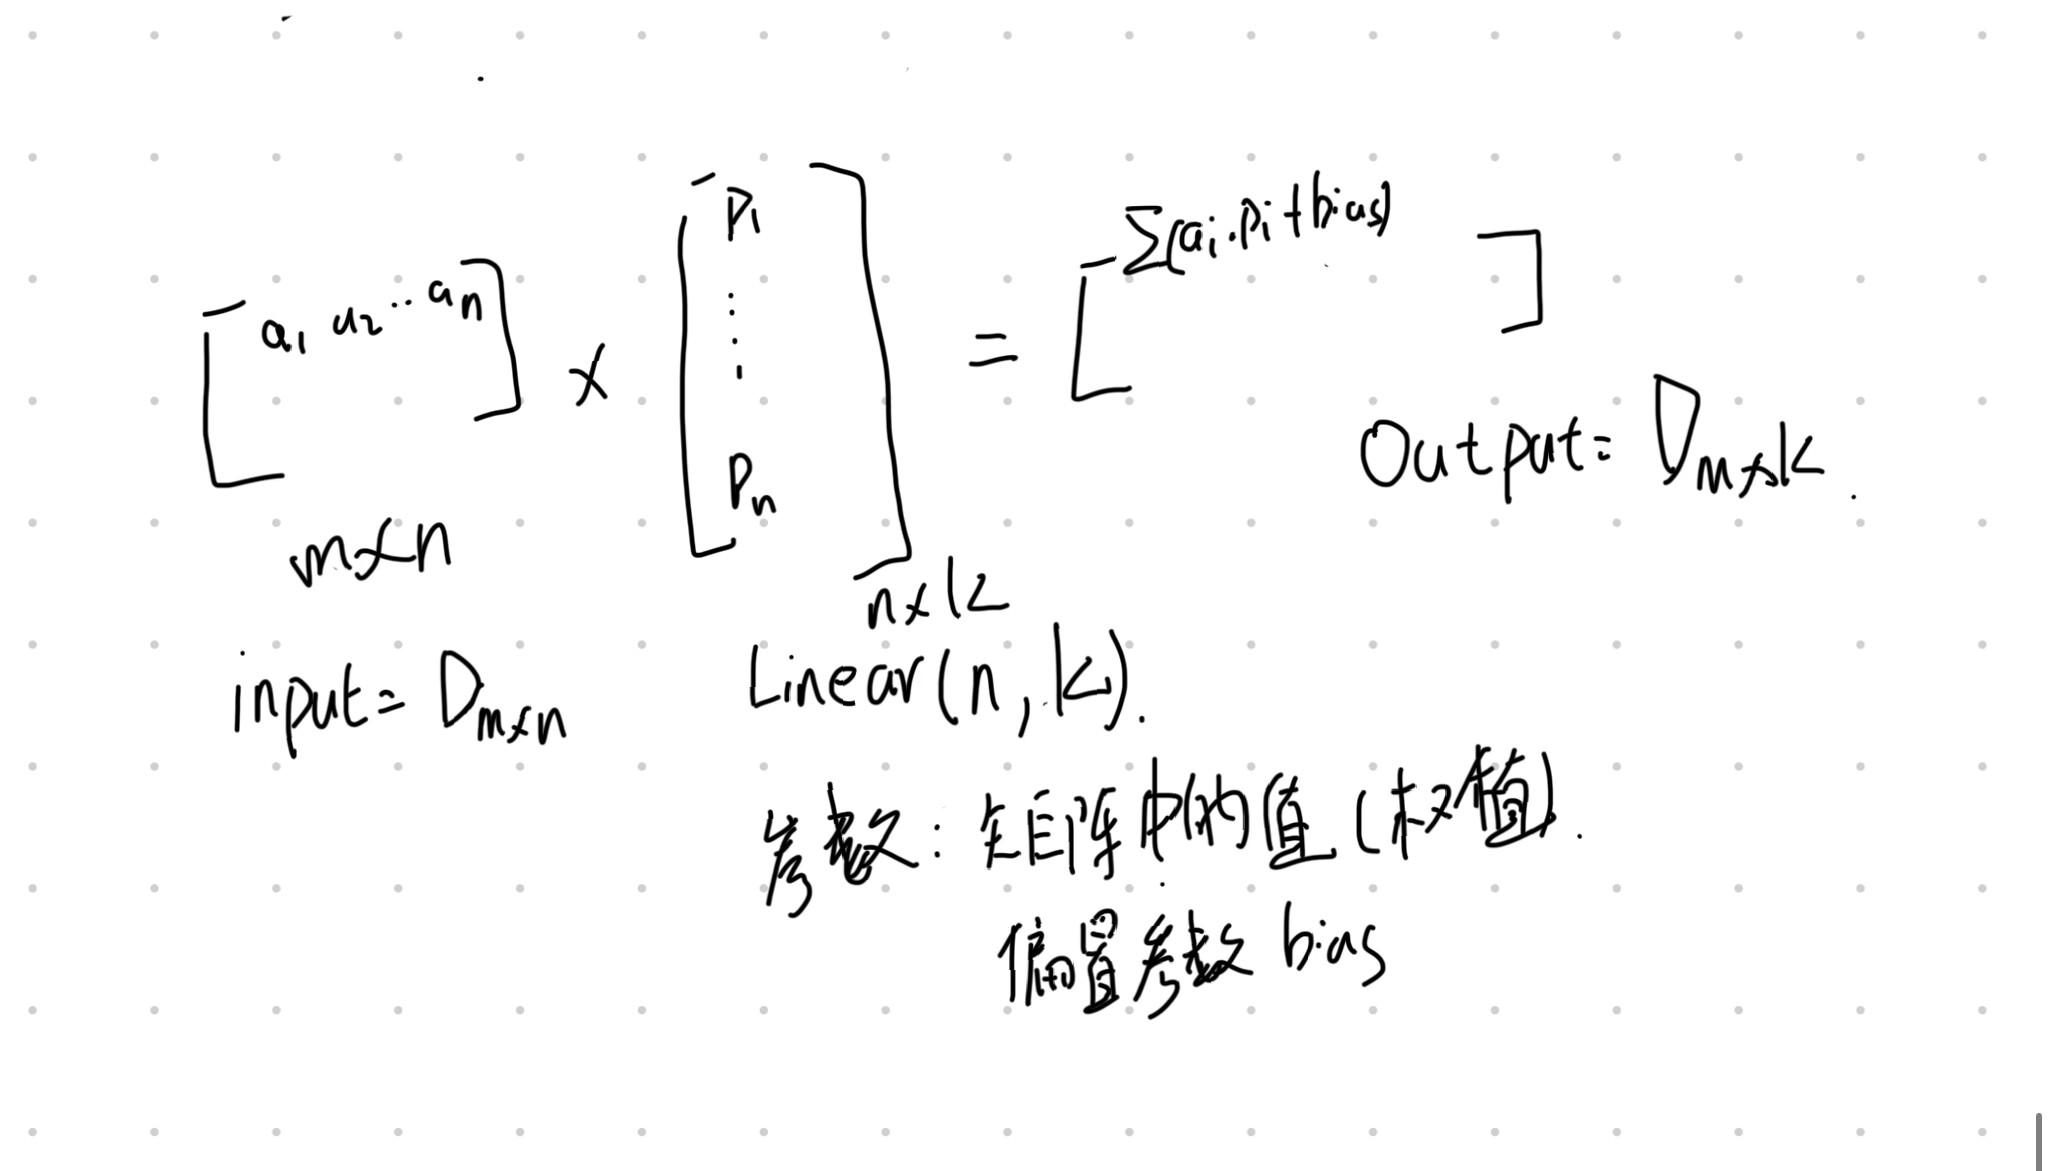 [a₁ a₂ ·· aₙ] × [p₁ ⋮ pₙ] = [Σ(aᵢ·pᵢ+bias)]
m×n
n×k
Output= D m×k.
input= D m×n
Linear(n,k).
参数: 矩阵中的值(权值).
偏置参数 bias